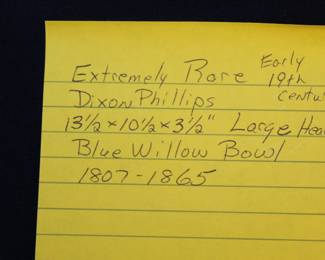 Extremely Rare Early
19th
Dixon Phillips Centu
13½ x 10½ x 3½" Large Hea
Blue Willow Bowl
1807-1865